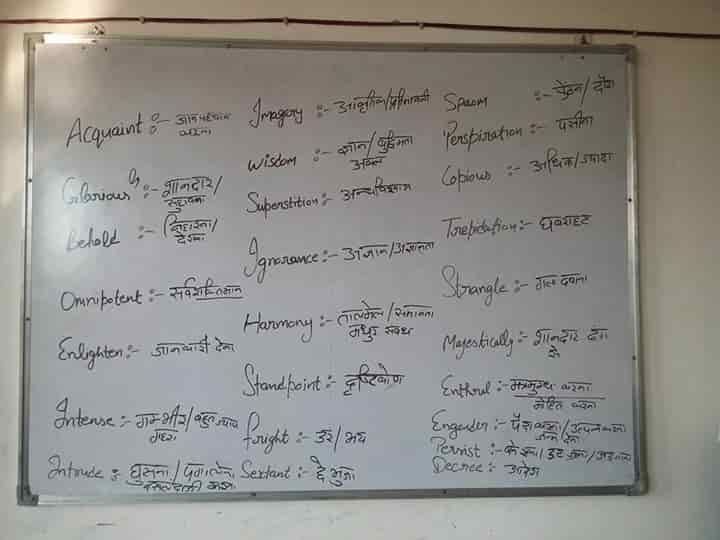 Acquaint :- जान पहचान
करना
Glorious :- शानदार/
Behold :- निहारना/
देखना
Omnipotent :- सर्वशक्तिमान
Enlighten :- जानकारी देना
Intense :- गम्भीर/बहुत ज्यादा
गहरा
Intrude :- घुसना/
Imagery :-
Wisdom :- ज्ञान/बुद्धिमता
अक्ल
Superstition :- अन्धविश्वास
Ignorance :- अंजान/अज्ञानता
Harmony :- तालमेल/समानता
मधुर
Standpoint :- दृष्टिकोण
Fright :- डर/भय
Sextant :-
Spasm :- ऐंठन/
Perspiration :- पसीना
Copious :- अधिक/ज्यादा
Trepidation :- घबराहट
Strangle :- गला दबाना
Majestically :- शानदार ढंग
से
Enthral :- मंत्रमुग्ध करना
मोहित करना
Engender :- पैदा करना/उत्पन्न करना
जन्म देना
Persist :-
Decree :- आदेश